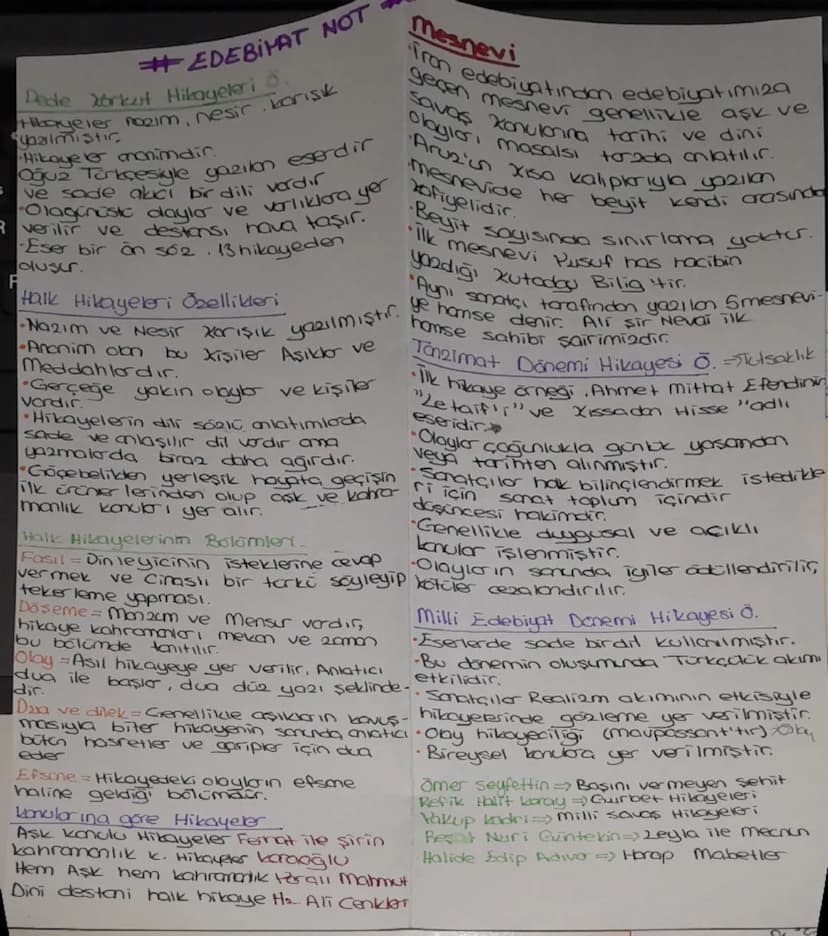 # EDEBİYAT NOT #
Dede Korkut Hikayeleri Ö.
Hikayeler nazım, nesir karışık
yazılmıştır.
Hikayeler anonimdir.
Oğuz Türkçesiyle yazılan eserdir
ve sade akıcı bir dili vardır
Olağanüstü olaylar ve varlıklara yer
verilir ve destansı hava taşır.
Eser bir ön söz, 13 hikayeden
oluşur.
Halk Hikayeleri Özellikleri
Nazım ve Nesir karışık yazılmıştır.
Anonim olan bu kişiler Aşıklar ve
Meddahlardır.
Gerçeğe yakın olaylar ve kişiler
vardır.
Hikayelerin dili sözlü anlatımlarda
sade ve anlaşılır dil vardır ama
yazmalarda biraz daha ağırdır.
Göçebelikten yerleşik hayata geçişin
ilk ürünlerinden olup aşk ve kahra-
manlık konuları yer alır.
Halk Hikayelerinin Bölümleri
Fasıl = Dinleyicinin isteklerine cevap
vermek ve Cinaslı bir türkü söyleyip
tekerleme yapması.
Döşeme = Manzum ve Mensur vardır,
hikaye kahramanları mekan ve zaman
bu bölümde tanıtılır.
Olay = Asıl hikayeye yer verilir, Anlatıcı
dua ile başlar, dua düz yazı şeklinde-
dir.
Dua ve dilek = Genellikle aşıkların kavuş-
masıyla biter hikayenin sonunda anlatıcı
bütün hasretler ve garipler için dua
eder
Efsane = Hikayedeki olayların efsane
haline geldiği bölümdür.
Konularına göre Hikayeler
Aşk konulu Hikayeler Ferhat ile Şirin
kahramanlık k. Hikayeler Köroğlu
Hem Aşk hem kahramanlık Yaralı Mahmut
Dini destani halk hikaye Hz. Ali Cenkleri
Mesnevi
İran edebiyatından edebiyatımıza
geçen mesnevi genellikle aşk ve
savaş konularına tarihi ve dini
olayları, masalsı tarzda anlatılır.
Aruz'un kısa kalıplarıyla yazılan
Mesnevide her beyit kendi arasında
kafiyelidir.
Beyit sayısında sınırlama yoktur.
İlk mesnevi Yusuf has hacibin
yazdığı Kutadgu Bilig'tir.
Aynı sanatçı tarafından yazılan 5 mesnevi-
ye hamse denir. Ali Şir Nevai ilk
hamse sahibi şairimizdir.
Tanzimat Dönemi Hikayesi Ö.
İlk hikaye örneği, Ahmet Mithat Efendinin
"Letaif'i" ve Kıssadan Hisse "adlı
eseridir.
Olaylar çoğunlukla günlük yaşamdan
veya tarihten alınmıştır.
Sanatçılar halk bilinçlendirmek istedikle
ri için sanat toplum içindir
düşüncesi hakimdir.
Genellikle duygusal ve acıklı
konular işlenmiştir.
Olayların sonunda iyiler ödüllendirilir,
kötüler cezalandırılır.
Milli Edebiyat Dönemi Hikayesi Ö.
Eserlerde sade bir dil kullanılmıştır.
Bu dönemin oluşumunda Türkçülük akımı
etkilidir.
Sanatçılar Realizm akımının etkisiyle
hikayelerinde gözleme yer verilmiştir.
Olay hikayeciliği (maupassant'tır) Olay
Bireysel konulara yer verilmiştir.
Ömer Seyfettin => Başını vermeyen Şehit
Refik Halit Karay => Gurbet Hikayeleri
Yakup kadri => Milli savaş Hikayeleri
Reşat Nuri Güntekin => Leyla ile Mecnun
Halide Edip Adıvar => Harap Mabetler